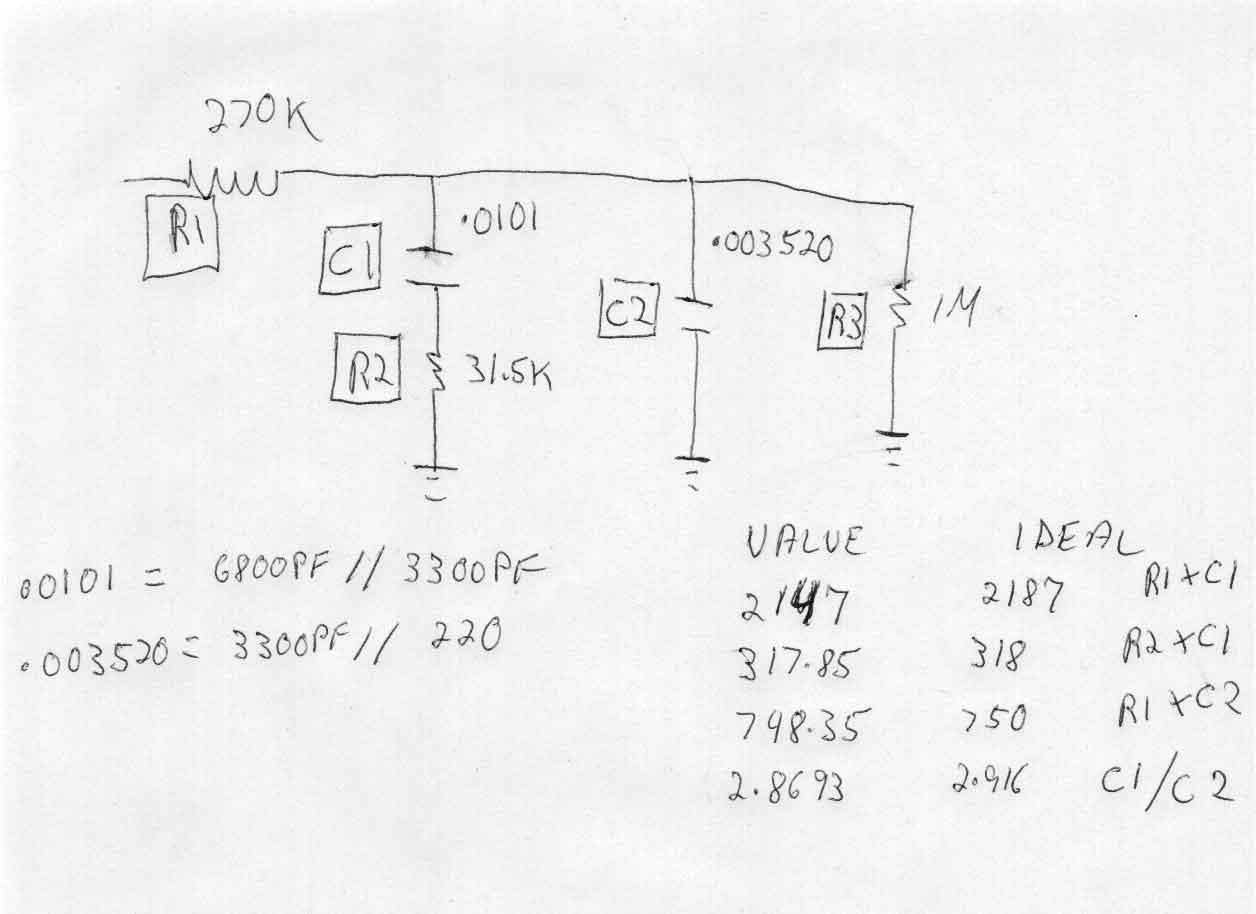 270K
R1
C1
.0101
R2
31.5K
C2
.003520
R3
1M
.0101 = 6800PF // 3300PF
.003520 = 3300PF // 220
VALUE IDEAL
2147 2187 R1×C1
317.85 318 R2×C1
748.35 750 R1×C2
2.8693 2.916 C1/C2